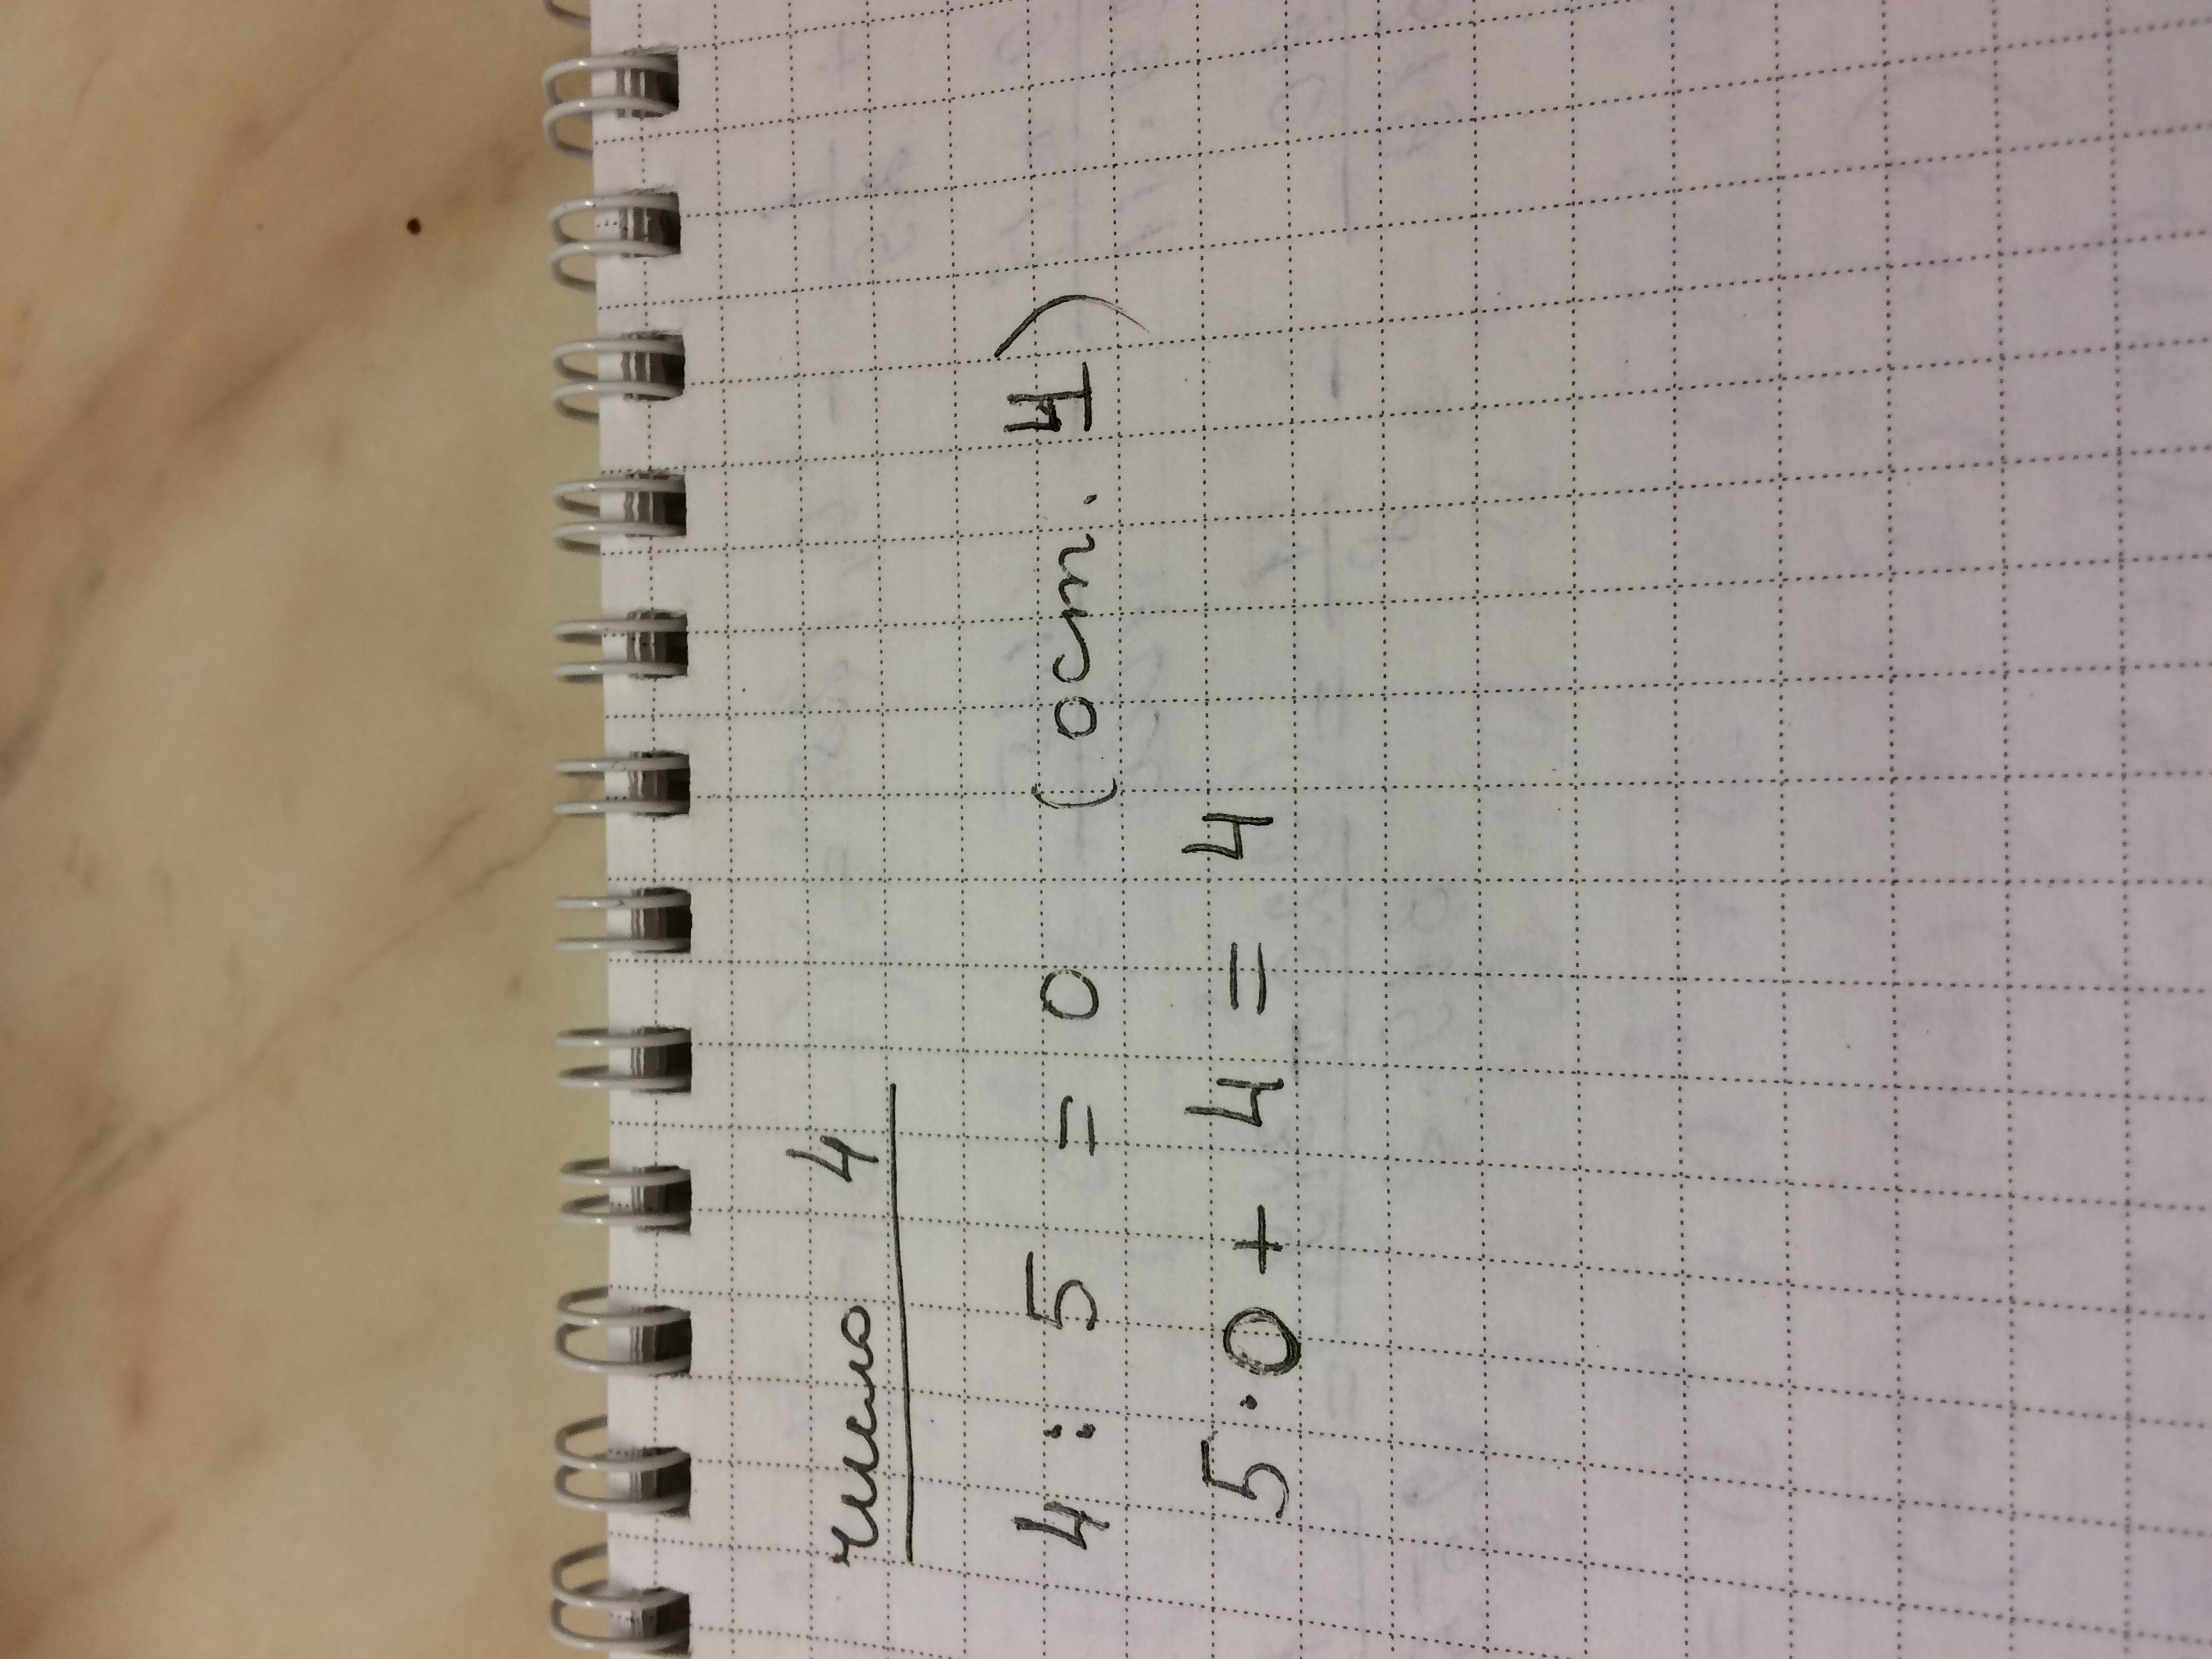 число 4
4 : 5 = 0 (ост. 4)
5 · 0 + 4 = 4